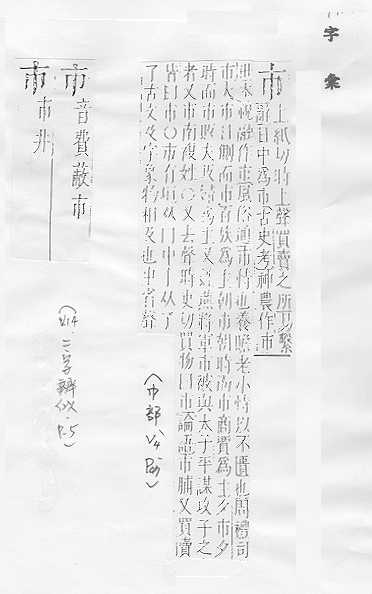 字彙
市 上紙切時上聲買賣之所易繫
辭日中為市古史考神農作市
世本祝融作市風俗通市恃也養贍老小恃以不匱也周禮司
市大市日昃而市百族為主朝市朝時而市商賈為主夕市夕
時而市販夫販婦為主又姓燕將軍市被與太子平謀攻子之
者又市南複姓○又去聲時吏切買物曰市論語市脯又買賣
皆曰市○市有垣从冂
了古文及字象物相及也屮省聲
(巾部 V4
市 音費蔽市
市 市井
(V14 二字辨似 P.5)